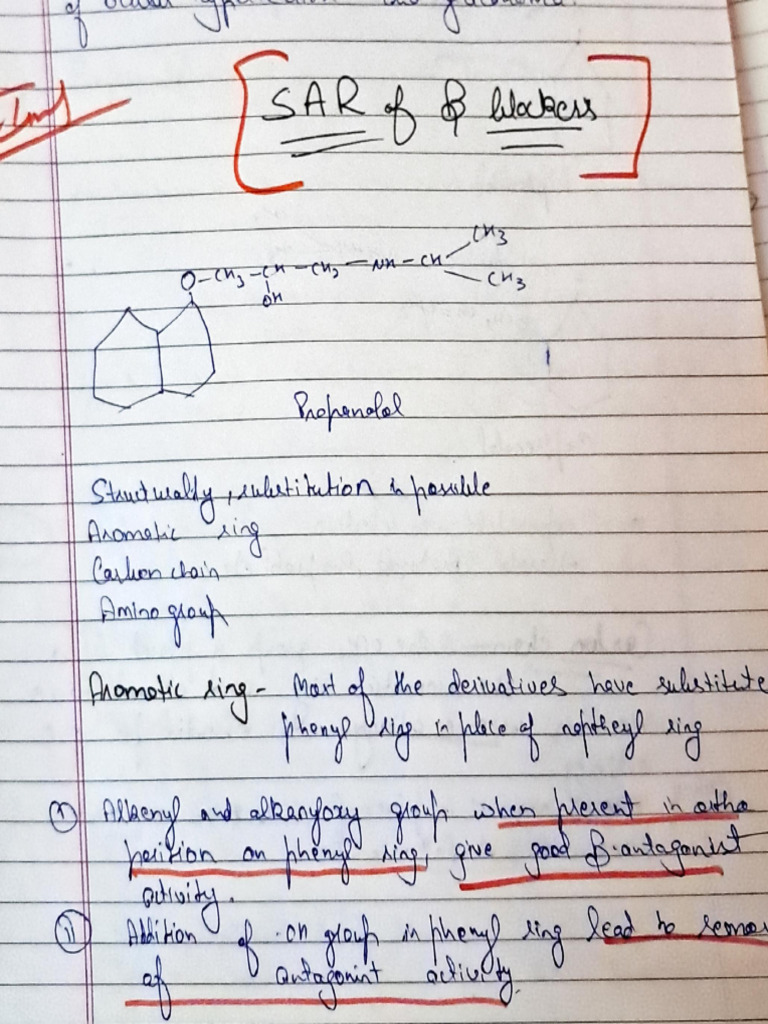 of
SAR of β blockers
CH3
O-CH3-CH-CH2-NH-CH
CH3
OH
Propenolol
Structurally, substitution is possible
Aromatic ring
Carbon chain
Amino group
Aromatic ring - Most of the derivatives have substitute
phenyl ring in place of naptheyl ring
① Alkenyl and alkanyloxy group when present in ortho
position on phenyl ring, give good β-antagonist
activity.
② Addition of -OH group in phenyl ring lead to
of antagonist activity.